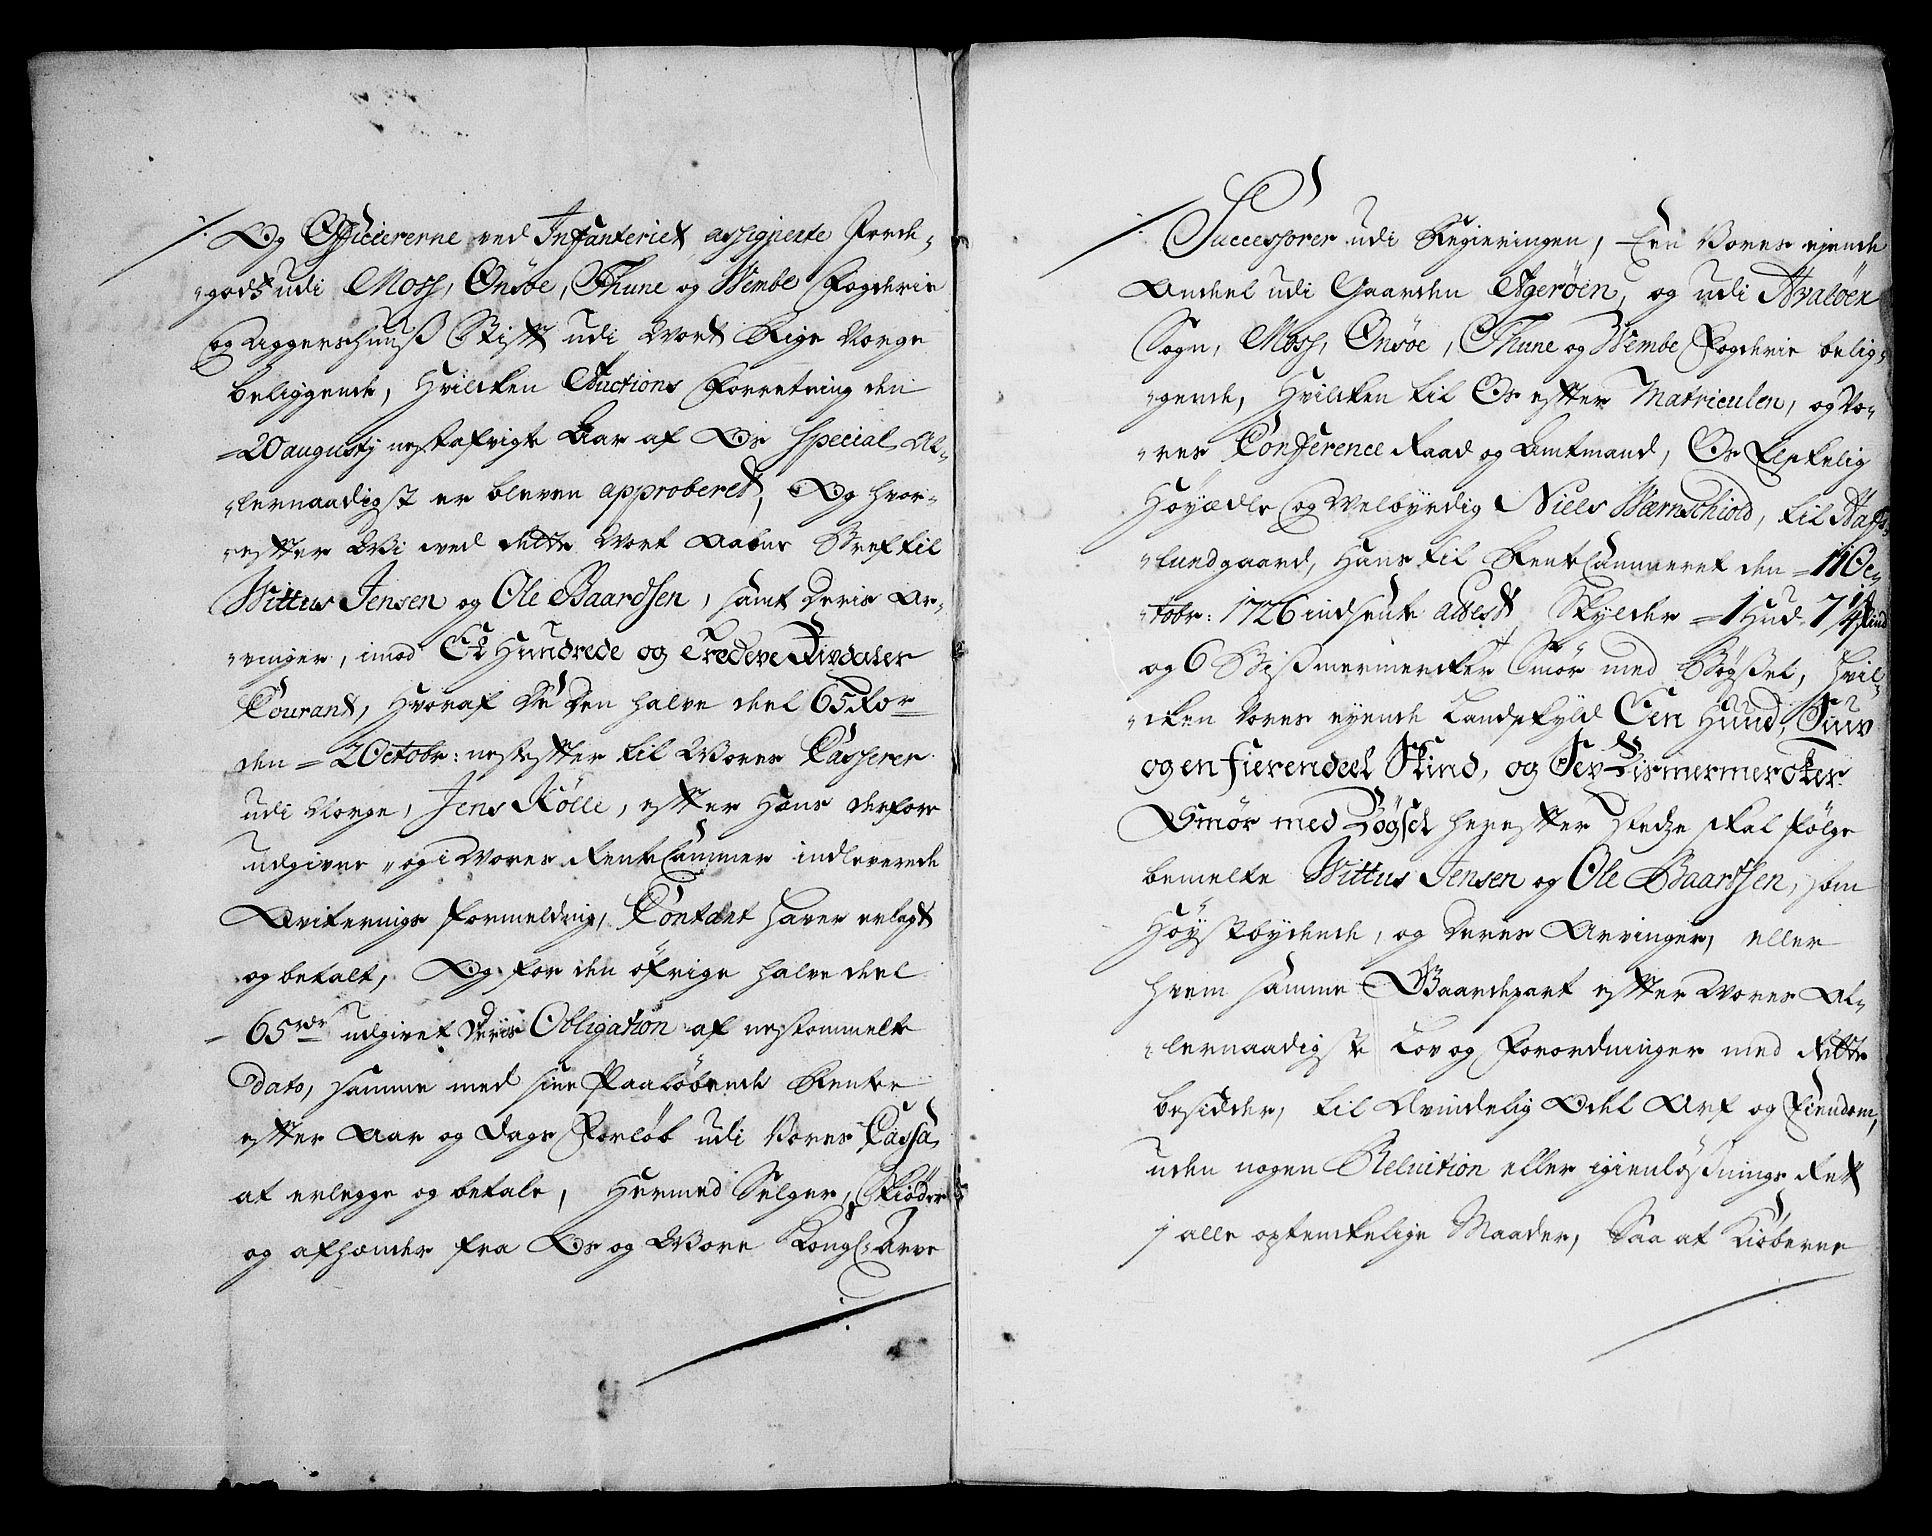 Og Officiererne ved Infanteriet assignerte Jorde-
-gods udi Moss, Onsøe, Thune og Wembe Fogderie
og Aggershuuss Stift udi Vort Rige Norge
beliggende, Hvilcken Auctions Forretning den
=20 augustj nestafvigte Aar af Os special Al-
-lernaadigst er bleven approberet, Og hvor-
-efter Vi ved dette Vort Aabne Bref til
Wittus Jensen og Ole Baardsen, samt Deris Ar-
-vinger, imod Et Hundrede og Tredeve Rixdaler
Courant, Hvoraf De Den halve deel 65 Rdr
den =2 Octobr: nestefter til Vores Casserer
udi Norge, Jens Kølle, efter Hans derfore
udgivne og i Vores RenteCammer indleverede
Qviterings Formelding, Contant haver erlagt
og betalt, Og for den öfrige halve deel
65 rdr udgivet deris Obligation af nestommelte
Dato, samme med sine Paaløbende Rente
efter Aar og Dags Forløb udi Vores Cassa
at erlegge og betale, Hermed Selger, Skiøder
og afhænder fra Os og Vore Kongl: Arve
Successorer udi Regieringen, Een Vores ejende
Andeel udi Gaarden Agerøen, og udi Hvaløen
Sogn, Moss, Onsøe, Thune og Wembe Fogderie belig-
-gende, Hvilcken til Os efter Matriculen, og Vo-
-res Conference Raad og Amtmand, Os Elskelig
Høyædle og Velbyrdig Niels Wærnschiold, til Hafs-
-lundgaard, Hans til RenteCammeret den =11 Oc-
-tobr: 1726 indsente attest Skylder =1 Hud 7 1/4 skind
og 6 Bissmermercker Smør med Bøgsel, hvil-
-cken Vores eyende Landskyld Een Hund, Siuv
og en fierendeel Skind, og Sex Bismermercker
Smør med Bøgsel herefter stedze skal følge
bemelte Wittus Jensen og Ole Baardsen, som
Høystbydende, og Deres Arvinger, eller
hvem samme Gaardepart efter Vores Al-
-lernaadigste Lov og Forordninger med Rette
besidder, til Uvindelig Odel Arf og Eiendom,
uden nogen Reluition eller igienløsnings Rett
j alle optenkelige Maader, Saa at Kiøberne